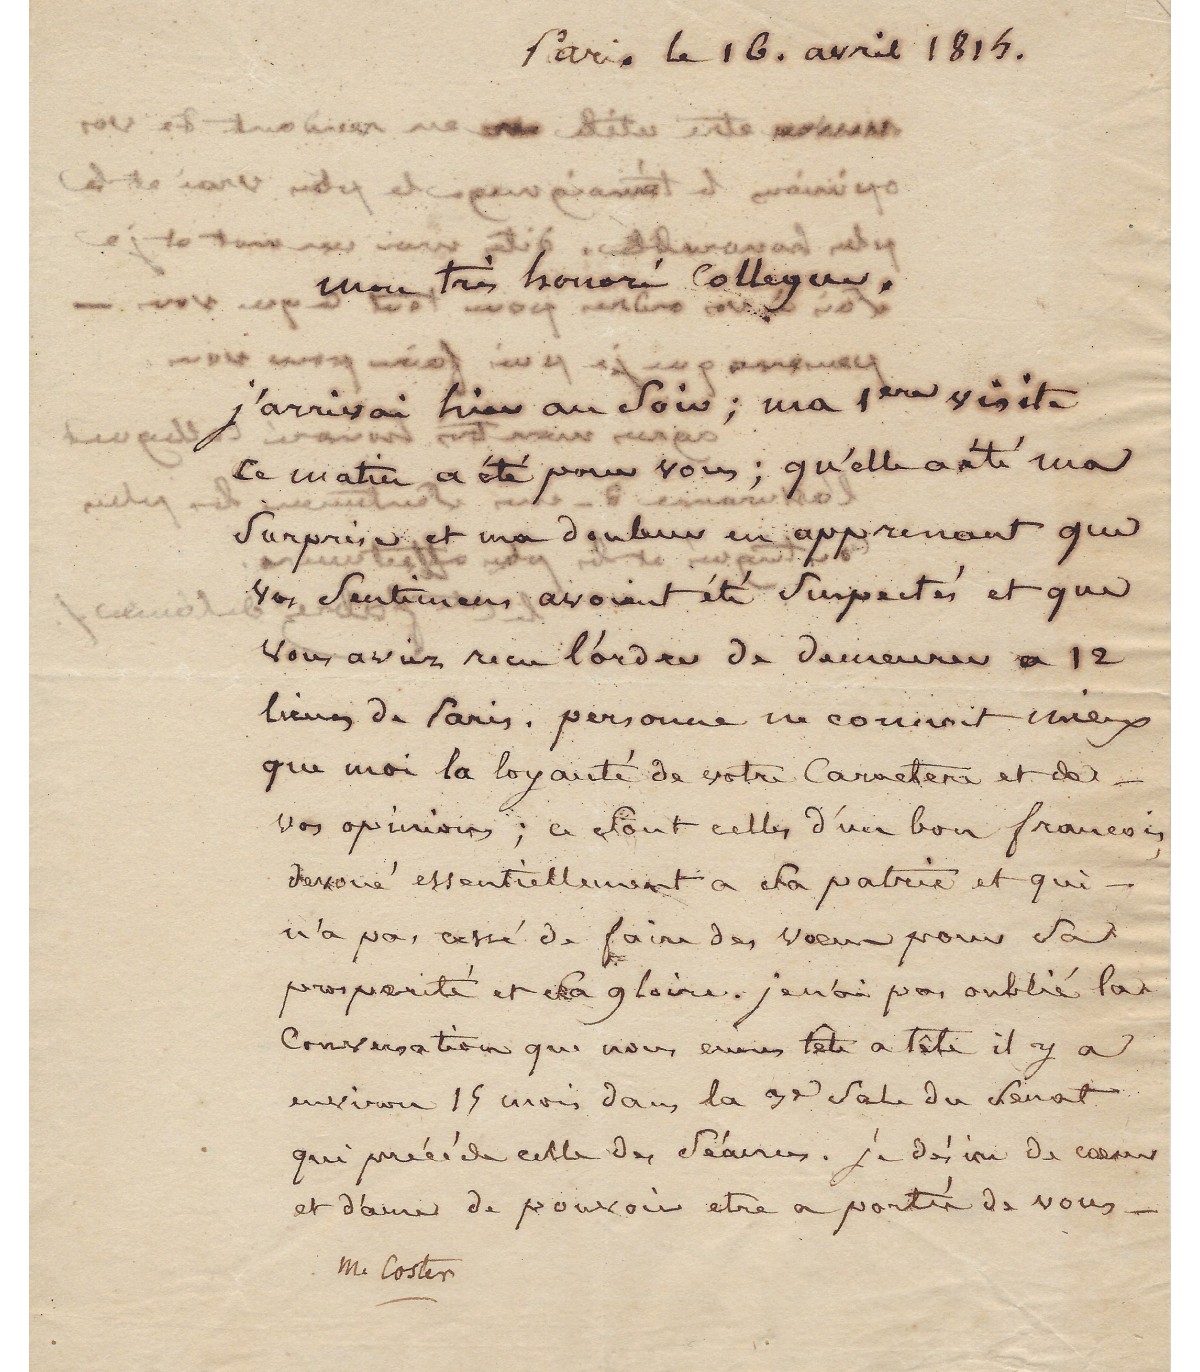 Paris le 16. avril 1815.
mon très honoré Collegue,
j'arrivai hier au Soir; ma 1ere visite
Ce matin a été pour vous; qu'elle a été ma
Surprise et ma douleur en apprenant que
vos Sentimens avoient été Suspectés et que
vous aviez recu l'ordre de demeurer a 12
lieues de Paris. personne ne connoit mieux
que moi la loyauté de votre Caractere et de –
vos opinions; ce Sont celles d'un bon francois,
devoué essentiellement a Sa patrie et qui –
n'a pas cessé de faire des vœux pour Sa
prosperité et Sa gloire. je n'ai pas oublié la
Conversation que nous eumes tête a tête il y a
environ 15 mois dans la Sale du Senat
qui précéde celle des Séances. je désire de cœur
et d'ame de pouvoir etre a portée de vous –
Mr Coster